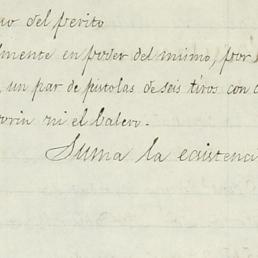 del perito
mente en poder del mismo, por
un par de pistolas de seis tiros con
ni el balero.
Suma la existenc